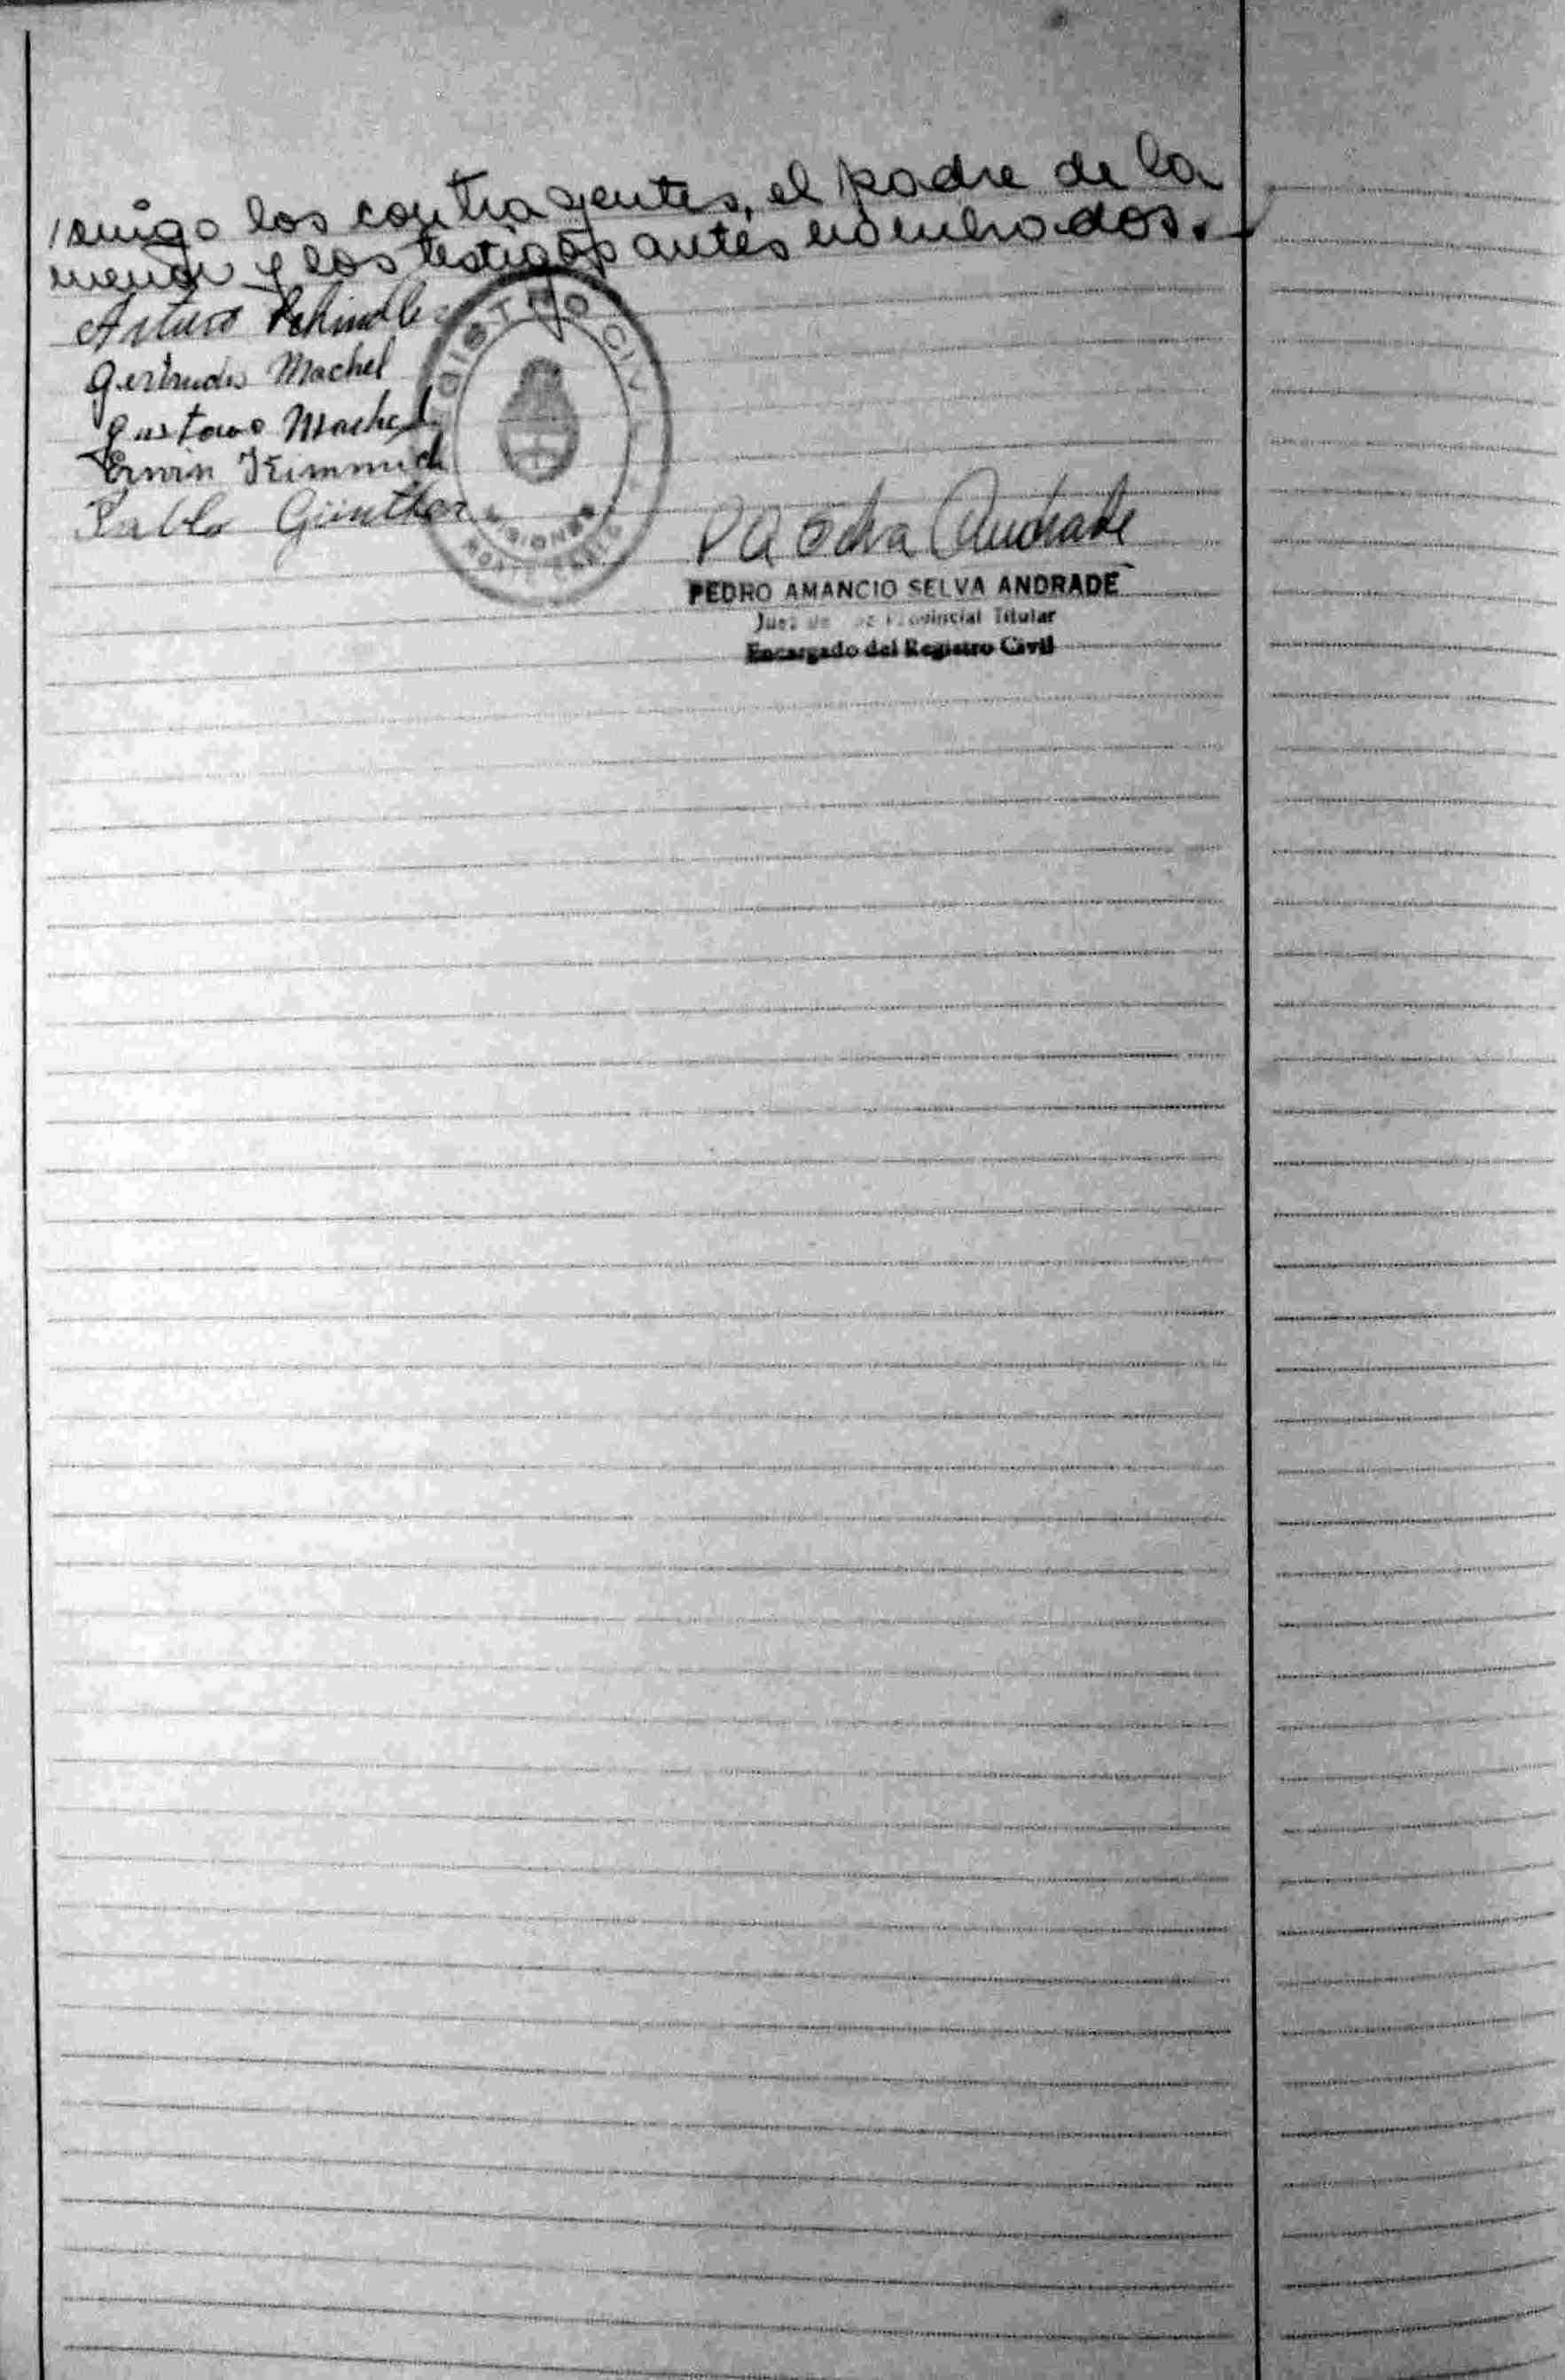 / migo los contrayentes, el padre de la
menor y los testigos antes nombrados.-
Arturo Schindler
Gertrudis Machel
Gustavo Machel
Erwin Kimmich
Pablo Günther
REGISTRO CIVIL
MISIONES
MONTE CARLO
PA Selva Andrade
PEDRO AMANCIO SELVA ANDRADE
Juez de Paz Provincial Titular
Encargado del Registro Civil